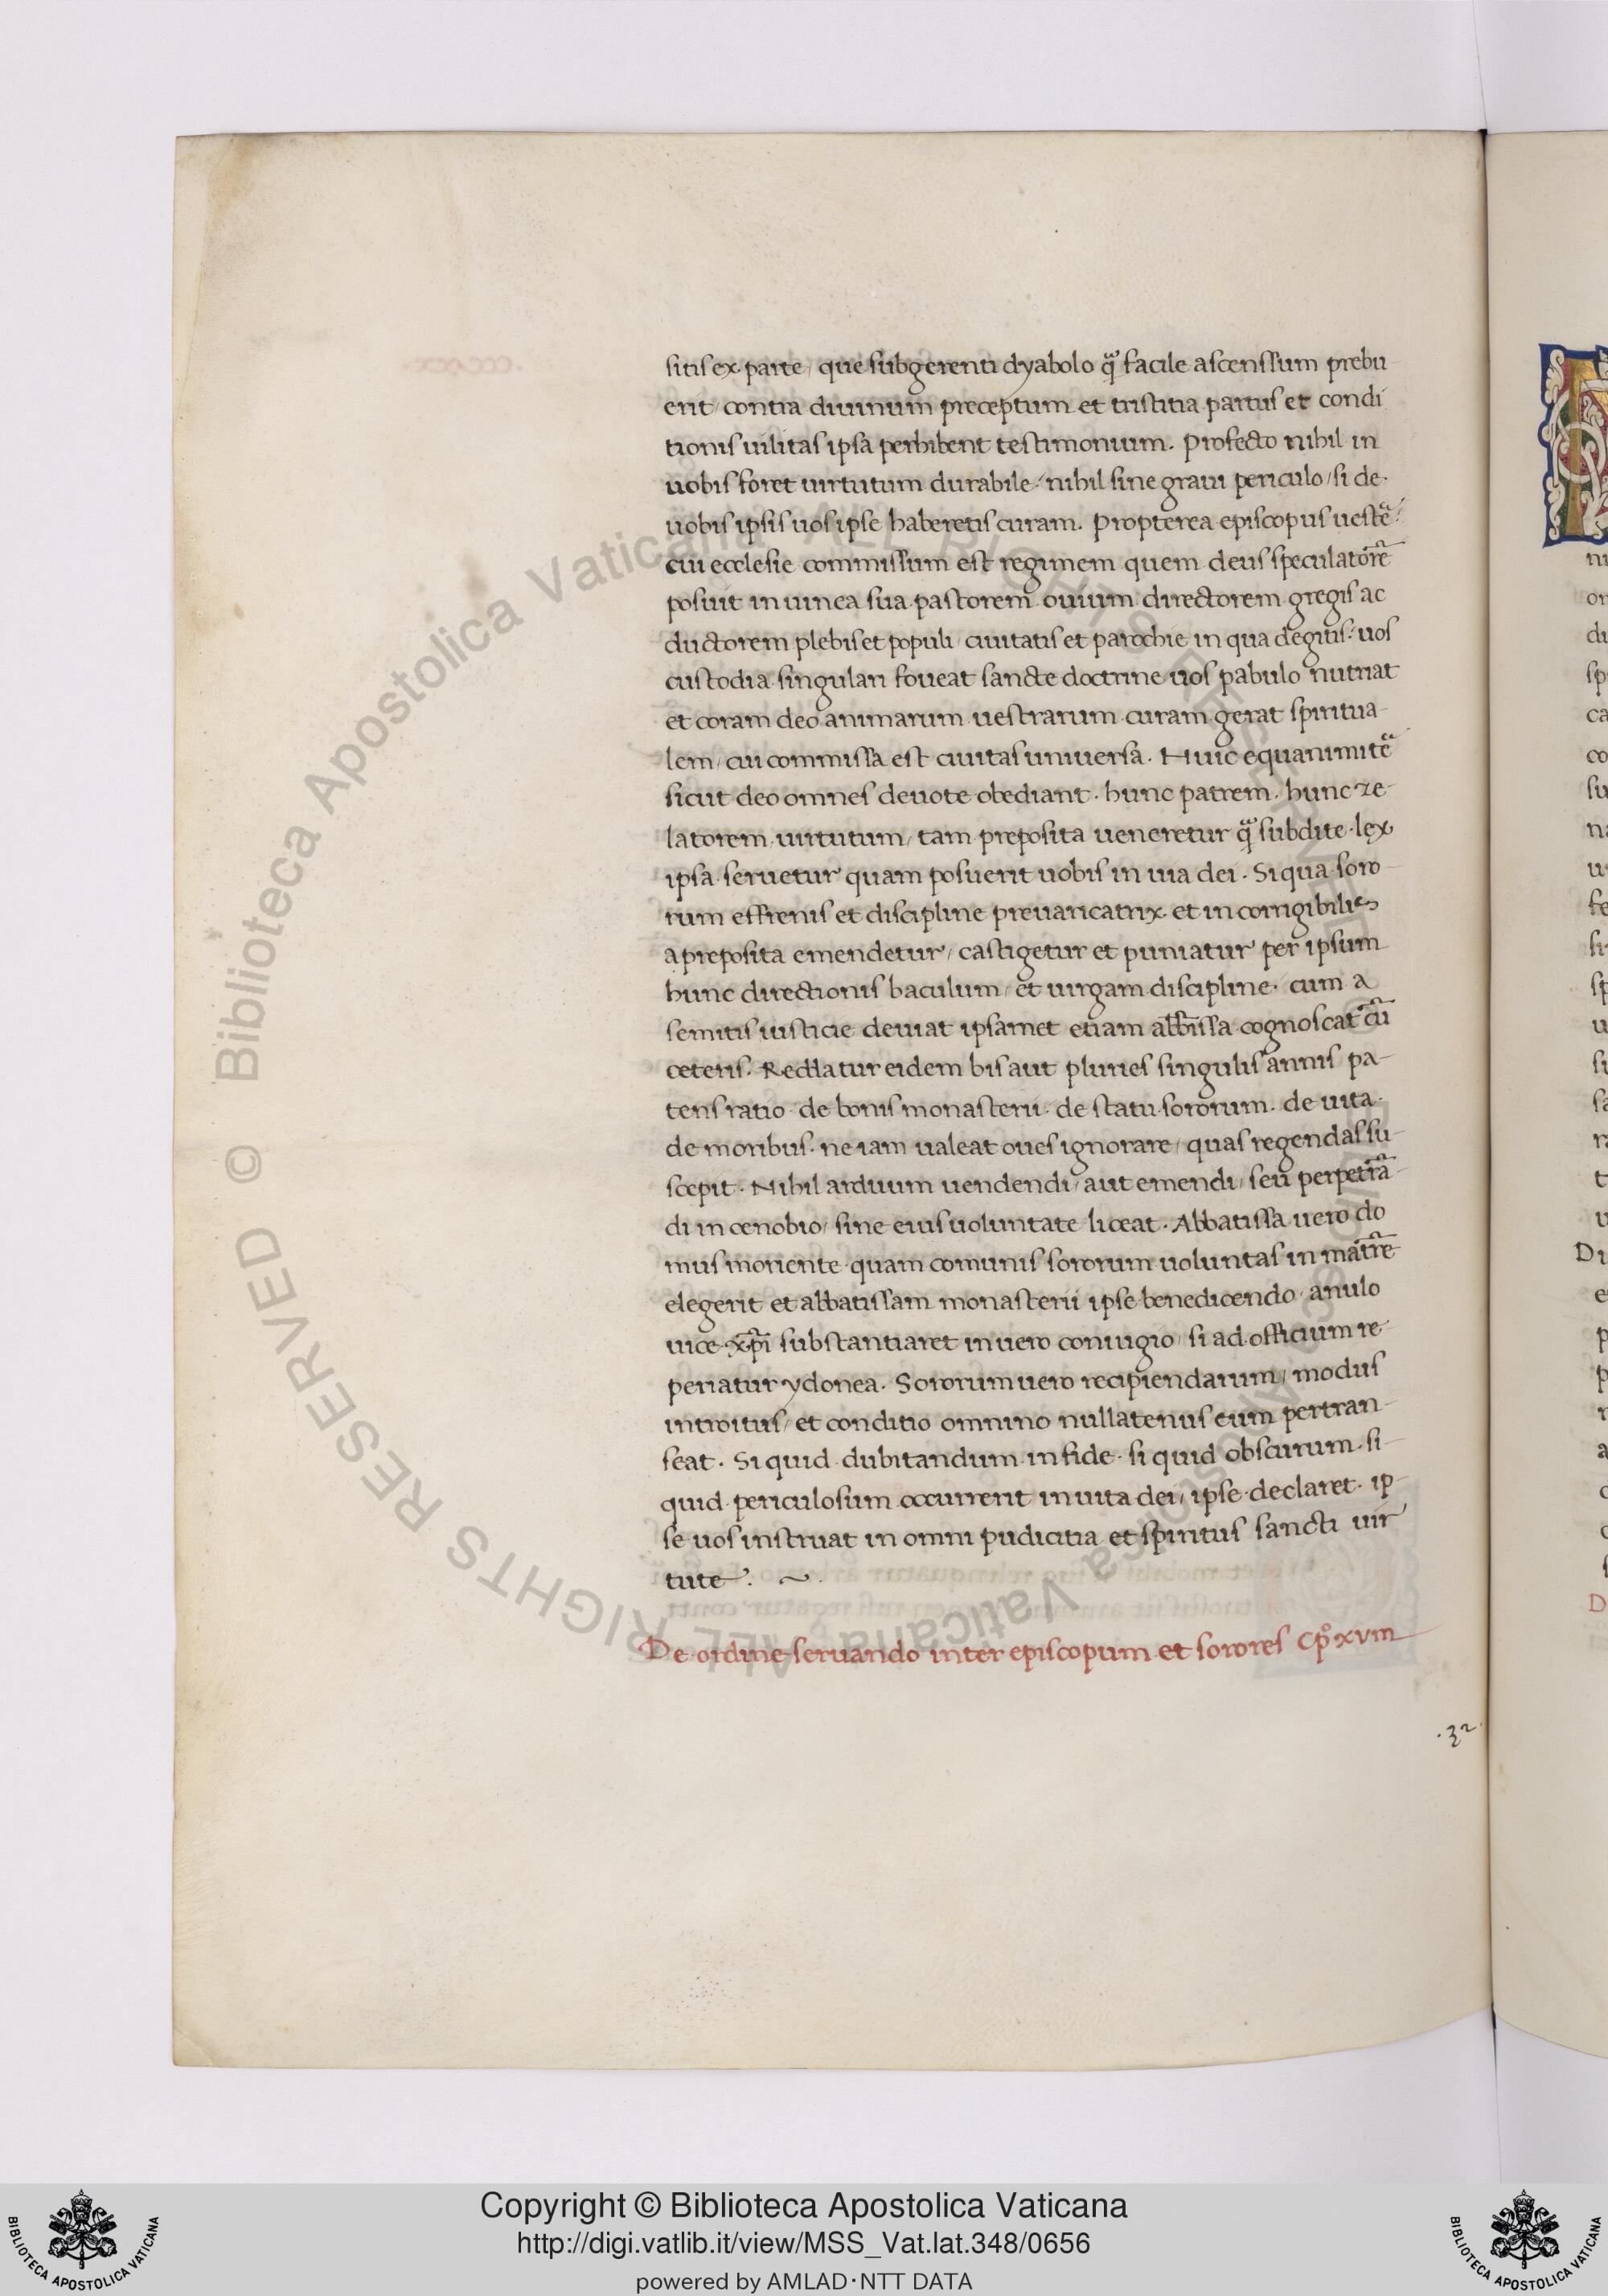 sitis ex parte, que subgerenti dyabolo qͣ facile ascenssum prebu-
erit, contra diuinum preceptum et tristitia partus et condi
tionis uilitas ipsa perhibent testimonium. Profecto nihil in
uobis foret uirtutum durabile, nihil sine graui periculo, si de
uobis ipsis uos ipse haberetis curam. Propterea episcopus uestẽ
cui ecclesie commissum est regimem quem deus speculatorẽ
posuit in uinea sua pastorem ouium directorem gregis ac
ductorem plebis et populi, ciuitatis et parochie in qua degitis: uos
custodia singulari foueat sancte doctrine uos pabulo nutriat
et coram deo animarum uestrarum curam gerat spiritua-
lem, cui commissa est ciuitas uniuersa. Huic equanimitẽ
sicut deo omnes deuote obediant. hunc patrem. hunc ze-
latorem uirtutum, tam preposita ueneretur qͣ subdite. lex
ipsa seruetur quam posuerit uobis in uia dei. Si qua soro-
rum effrenis et discipline preuaricatrix et in corrigibilies
a preposita emendetur, castigetur et puniatur per ipsum
hunc directionis baculum, et uirgam discipline. cum a
semitis iusticie deuiat ipsamet etiam abbissa cognoscat cũ
ceteris. Reddatur eidem bis aut pluries singulis annis pa-
tens ratio de bonis monasterii. de statu sororum. de uita.
de moribus. ne iam ualeat oues ignorare, quas regendas su-
scepit. Nihil arduum uendendi, aut emendi, seu perpetrã
di in cenobio, sine eius uoluntate liceat. Abbatissa uero do
mus moriente quam comunis sororum uoluntas in matrẽ
elegerit et abbatissam monasterii ipse benedicendo anulo
uice xp̃i substantiaret in uero coniugio, si ad officium re-
periatur ydonea. Sororum uero recipiendarum, modus
introitus, et conditio omnino nullatenus eum pertran-
seat. Si quid dubitandum in fide. si quid obscurum. si-
quid periculosum occurrerit in uita dei, ipse declaret. ip-
se uos instruat in omni pudicitia et spiritus sancti uir
tute. ~
De ordine seruando inter episcopum et sorores Cp̊ xvm
.32.
Biblioteca Apostolica Vaticana ALL RIGHTS RESERVED ©
Biblioteca Apostolica Vaticana ALL RIGHTS RESERVED ©
Copyright © Biblioteca Apostolica Vaticana
http://digi.vatlib.it/view/MSS_Vat.lat.348/0656
powered by AMLAD·NTT DATA
BIBLIOTECA APOSTOLICA VATICANA
BIBLIOTECA APOSTOLICA VATICANA